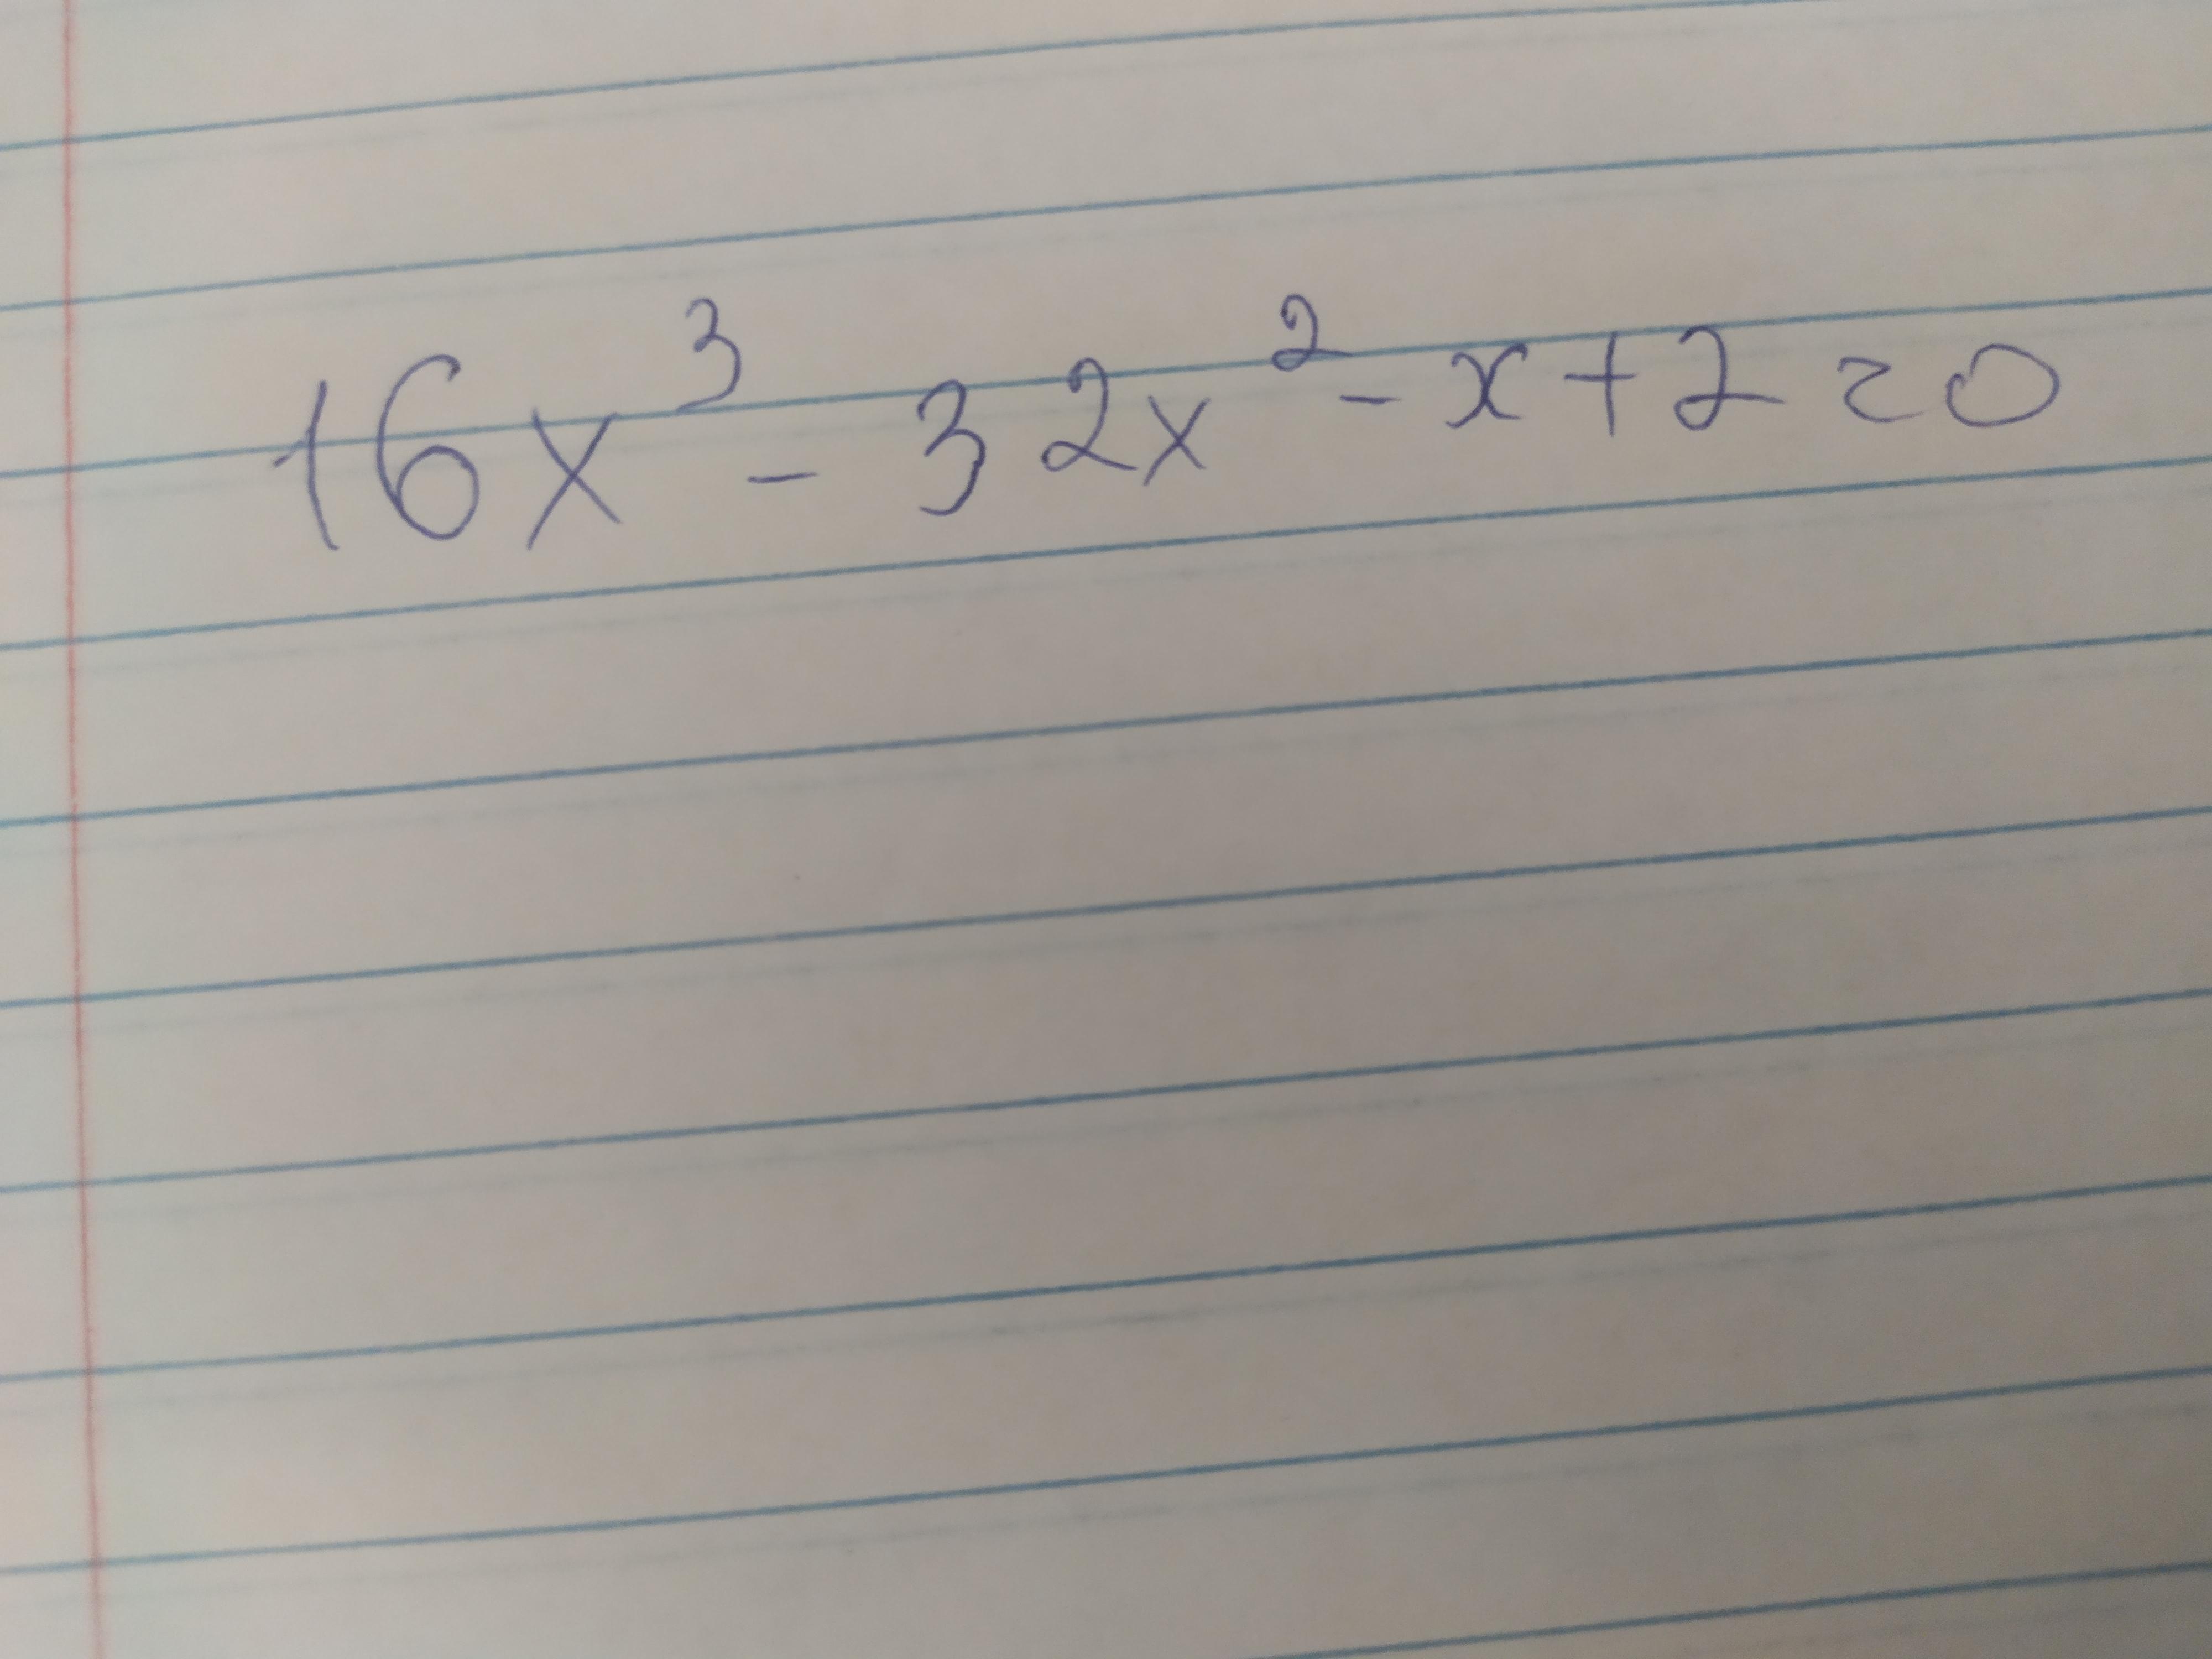 16x³ - 32x² - x + 2 = 0